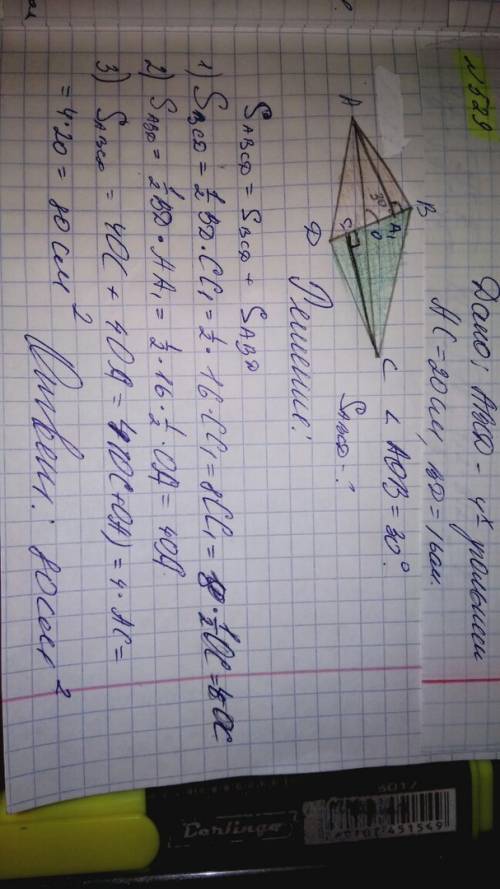 №529
Дано: ABCD - 4х угольник
AC = 20 см, BD = 16 см.
∠ AOB = 30°.
S ABCD - ?
A
B
C
D
A₁
O
C₁
30°
Решение:
S ABCD = S BCD + S ABD
1) S BCD = ½ BD · CC₁ = ½ · 16 · CC₁ = 8CC₁ = 8 · ½ OC = 4OC
2) S ABD = ½ BD · AA₁ = ½ · 16 · ½ · OA = 4OA
3) S ABCD = 4OC + 4OA = 4(OC + OA) = 4 · AC =
= 4 · 20 = 80 см²
Ответ: 80 см²
6017
Berlingo